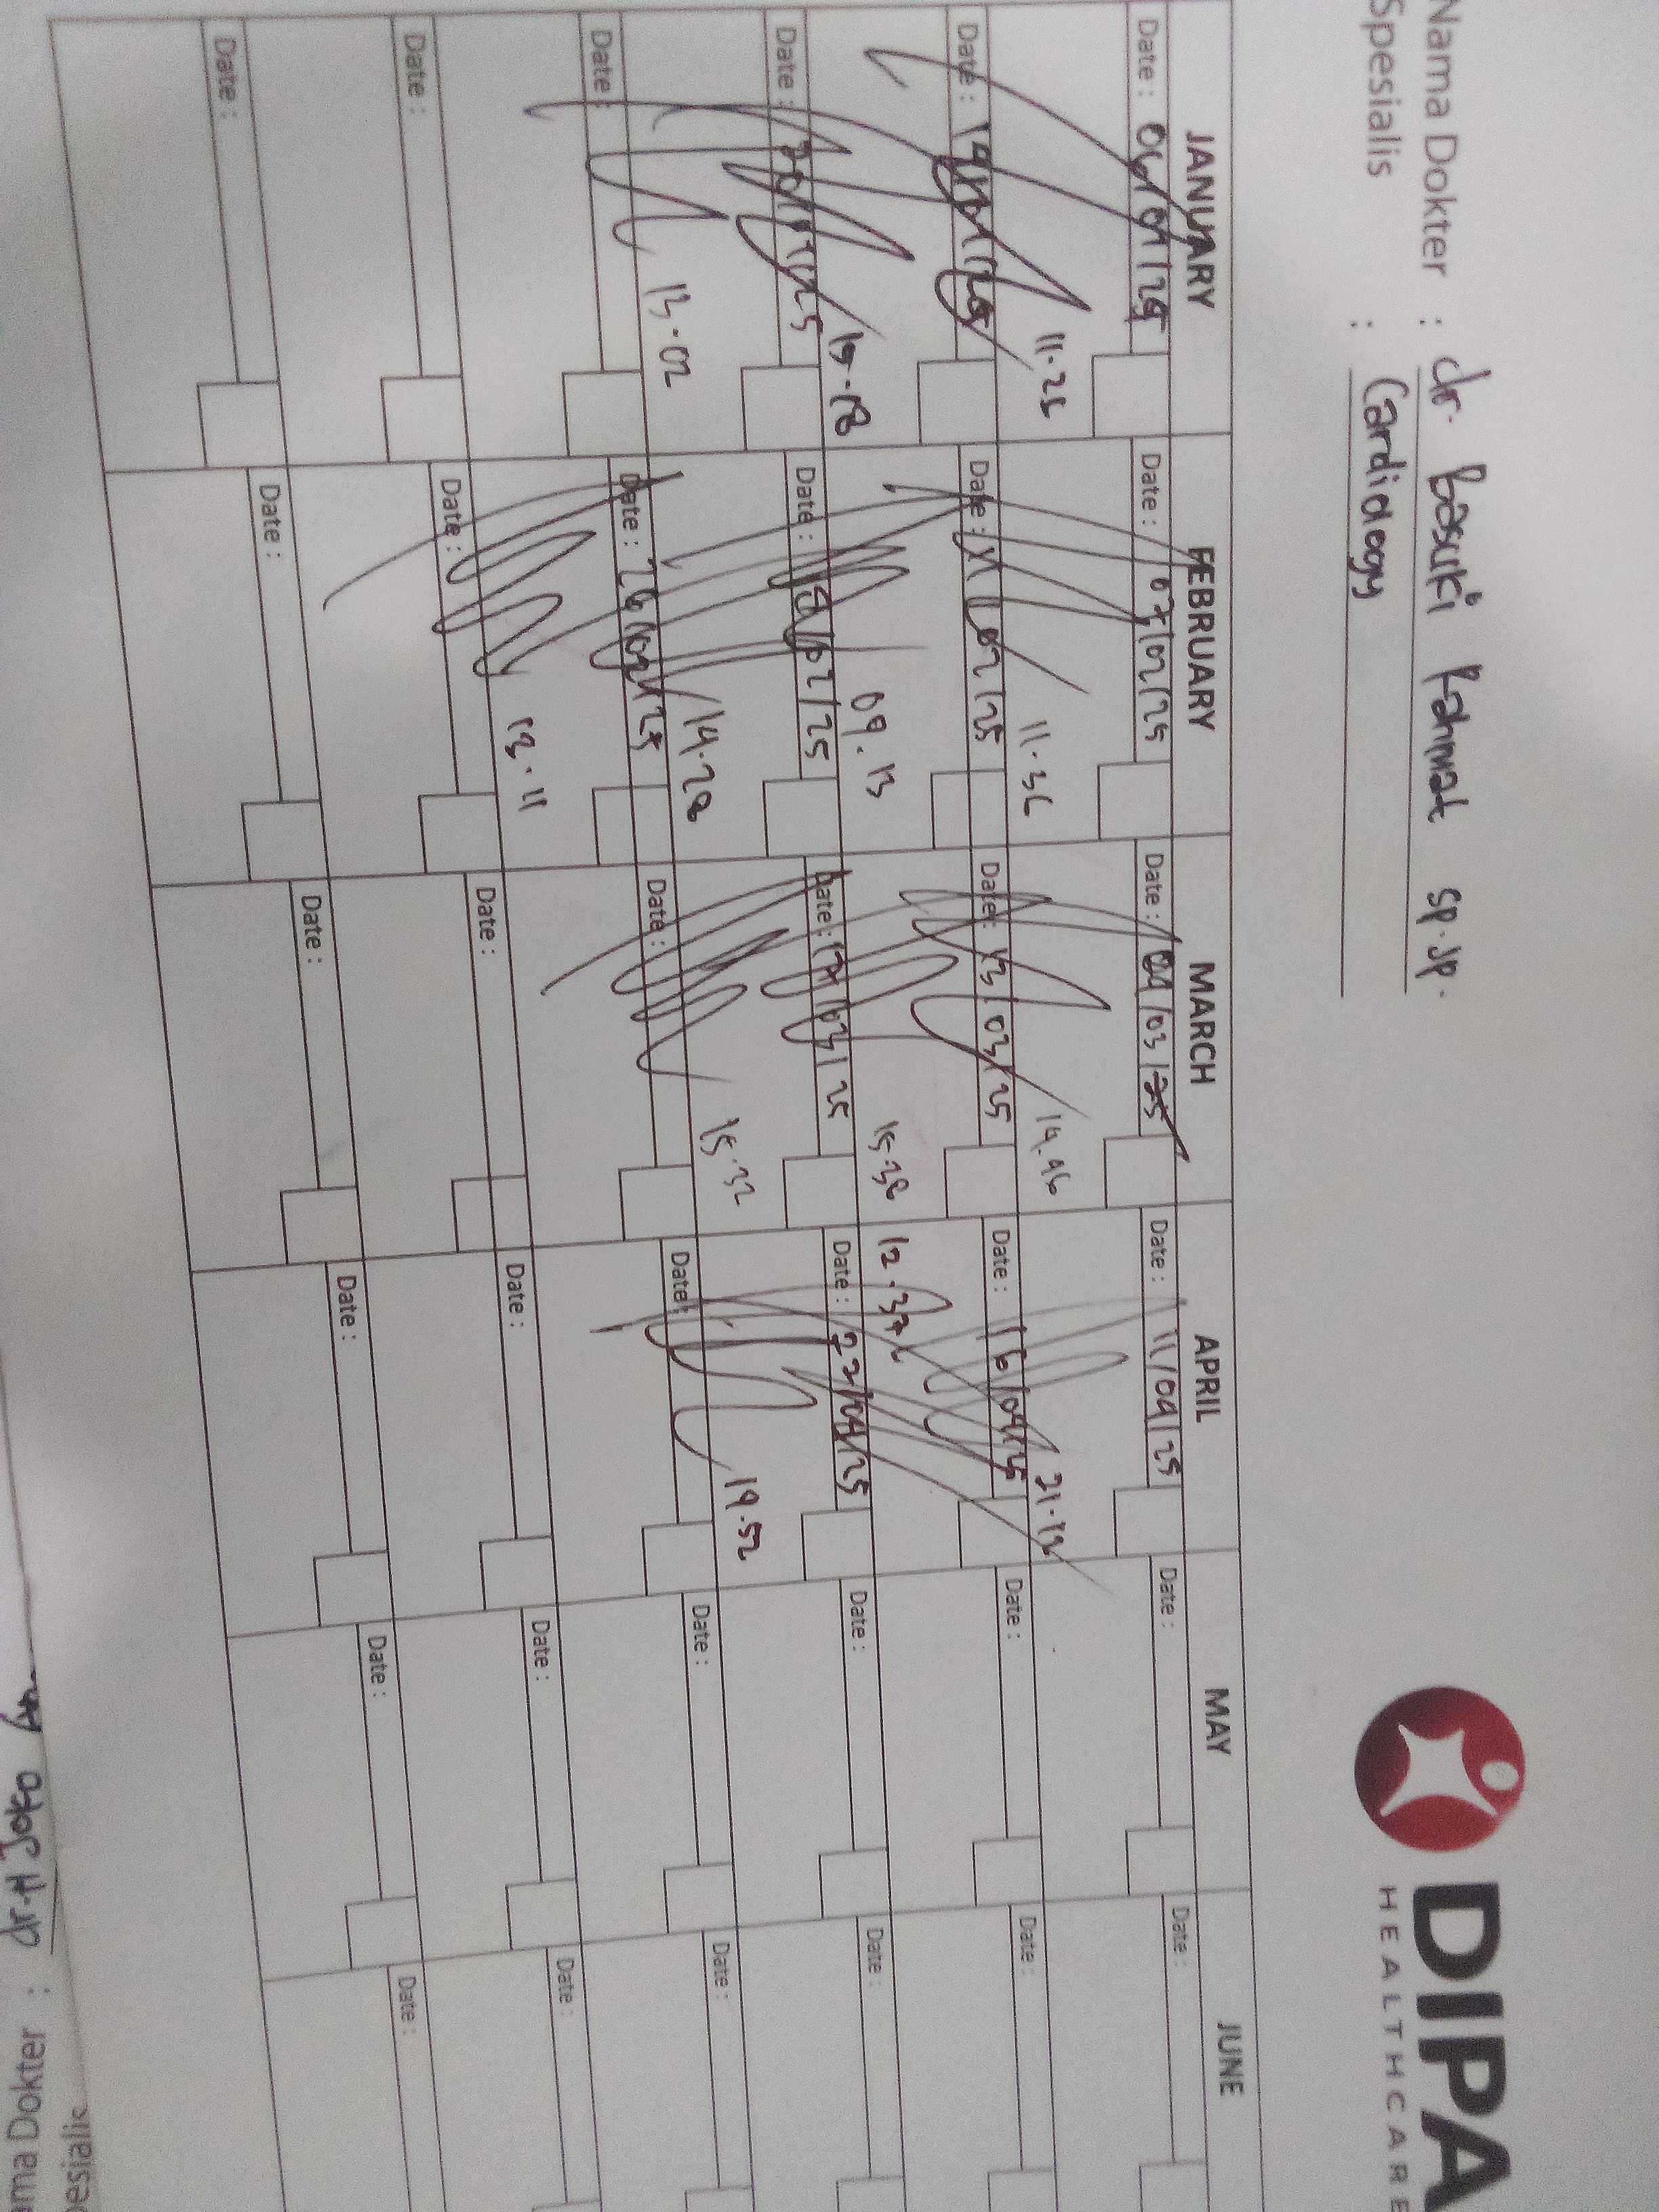 Nama Dokter : dr. Basuki Rahmat Sp.JP.
Spesialis : Cardiology
DIPA
HEALTHCARE
JANUARY FEBRUARY MARCH APRIL MAY JUNE
Date : Date : 07/02/25 Date : 04/03/25 Date : 11/04/25 Date : Date :
11.25 11.36 14.46 21.12
Date : Date : /02/25 Date : 13/03/25 Date : 16/04/25 Date : Date :
15.18 09.13 15.38 12.37
Date : Date : /02/25 Date : /03/25 Date : 22/04/25 Date : Date :
13.02 14.28 15.32 19.52
Date : Date : 26/02/25 Date : Date : Date : Date :
13.11
Date : Date : Date : Date : Date : Date :
Date : Date : Date : Date : Date : Date :
ma Dokter : dr. H Joko
esialis